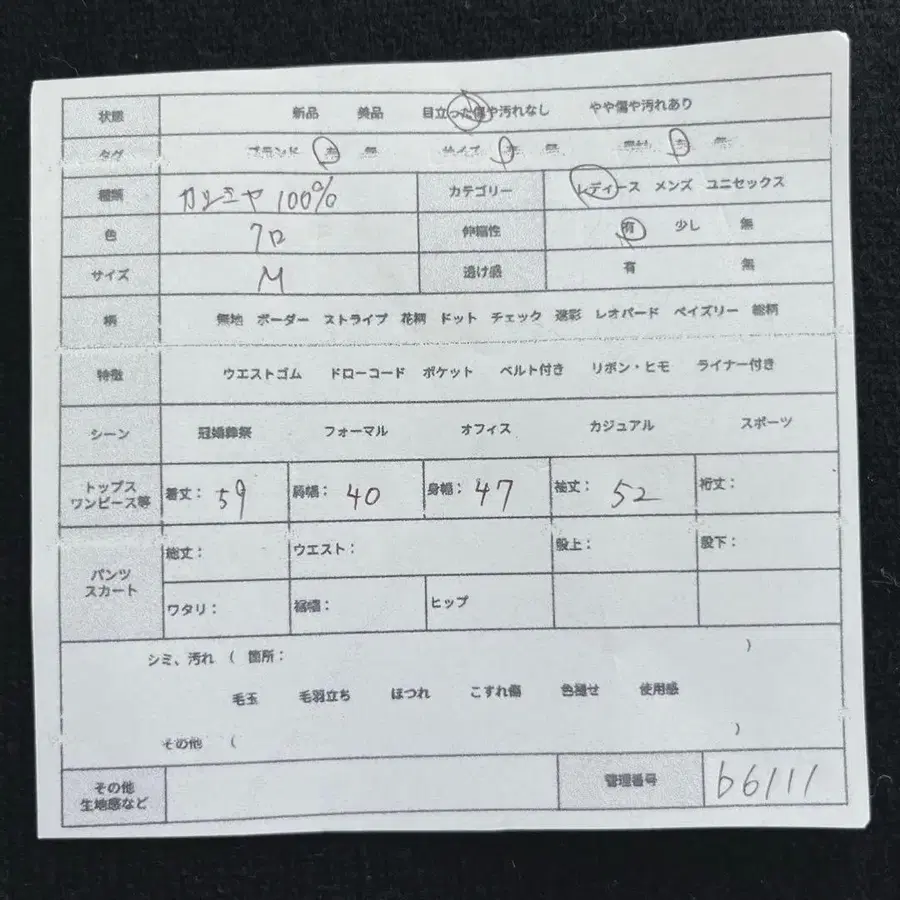 状態 新品 美品 目立った傷や汚れなし やや傷や汚れあり
タグ ブランド 有 無 サイズ 有 無 素材 有 無
種類 カシミヤ 100% カテゴリー レディース メンズ ユニセックス
色 クロ 伸縮性 有 少し 無
サイズ M 透け感 有 無
柄 無地 ボーダー ストライプ 花柄 ドット チェック 迷彩 レオパード ペイズリー 総柄
特徴 ウエストゴム ドローコード ポケット ベルト付き リボン・ヒモ ライナー付き
シーン 冠婚葬祭 フォーマル オフィス カジュアル スポーツ
トップス
ワンピース等 着丈: 59 肩幅: 40 身幅: 47 袖丈: 52 裄丈:
パンツ
スカート 総丈: ウエスト: 股上: 股下:
ワタリ: 裾幅: ヒップ
シミ、汚れ ( 箇所: )
毛玉 毛羽立ち ほつれ こすれ傷 色褪せ 使用感
その他 ( )
その他
生地感など 管理番号 b6111